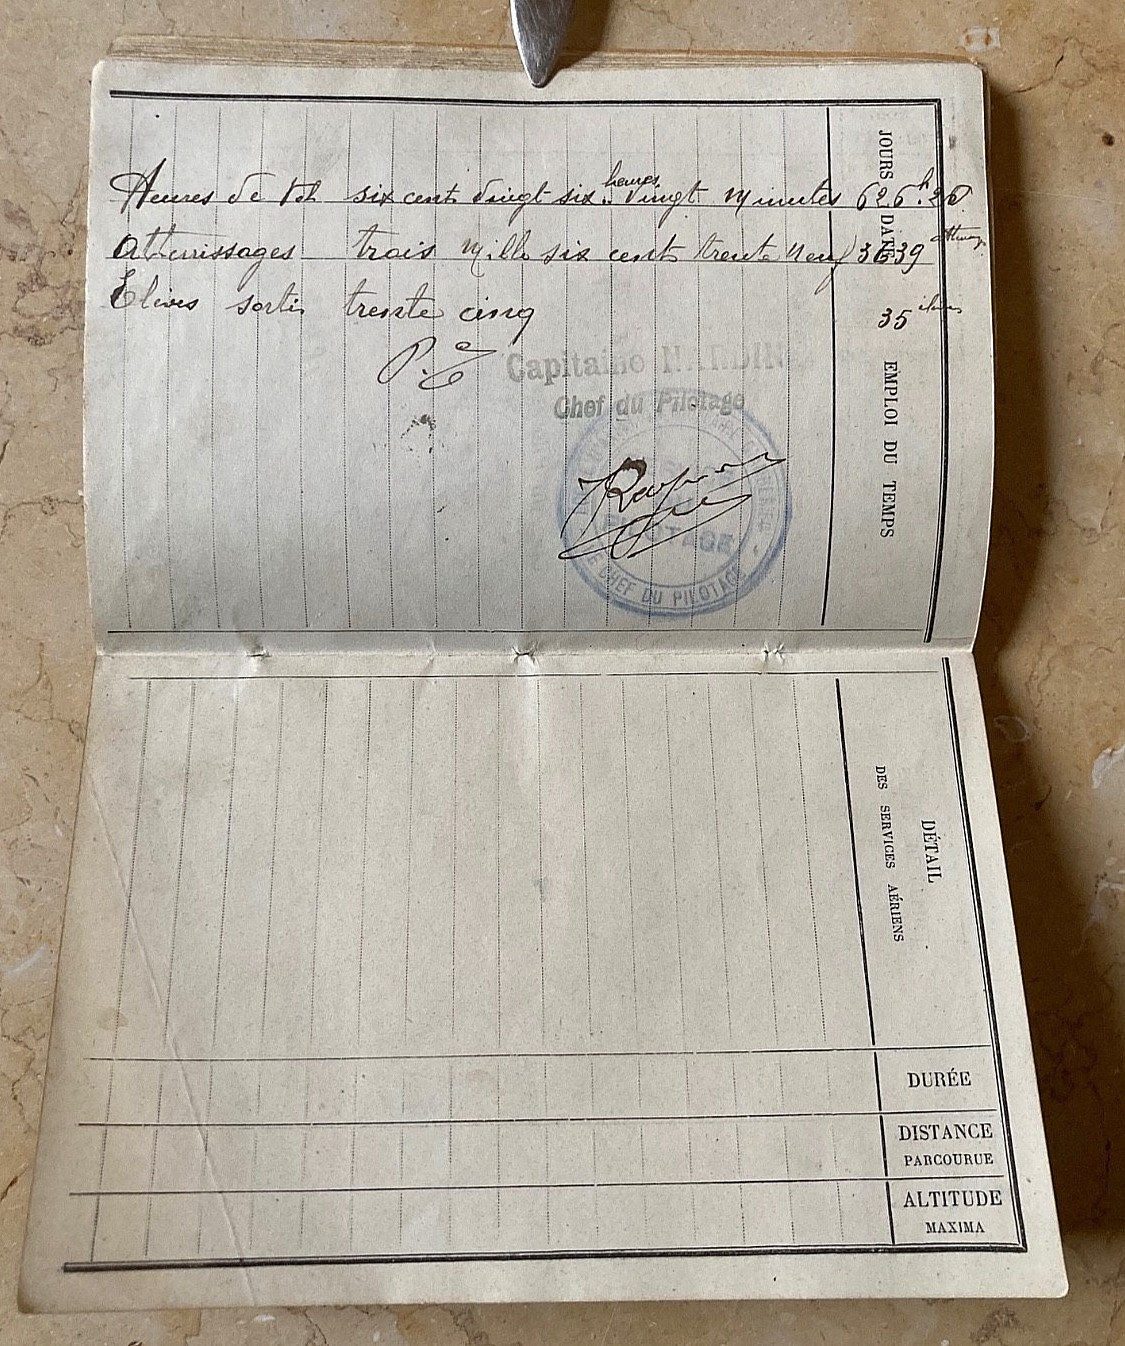 Heures de Vol six cent vingt six heures vingt minutes 626.h20
Atterrissages trois mille six cent trente neuf 3639
Elèves sortis trente cinq 35 élèves
Capitaine NARDIN
Chef du Pilotage
PILOTAGE
LE CHEF DU PILOTAGE
JOURS
DATES
EMPLOI DU TEMPS
DÉTAIL
DES SERVICES AÉRIENS
DURÉE
DISTANCE
PARCOURUE
ALTITUDE
MAXIMA